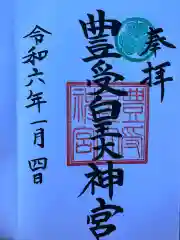 奉拝
豊受皇大神宮
豊受
神宮
令和六年一月四日